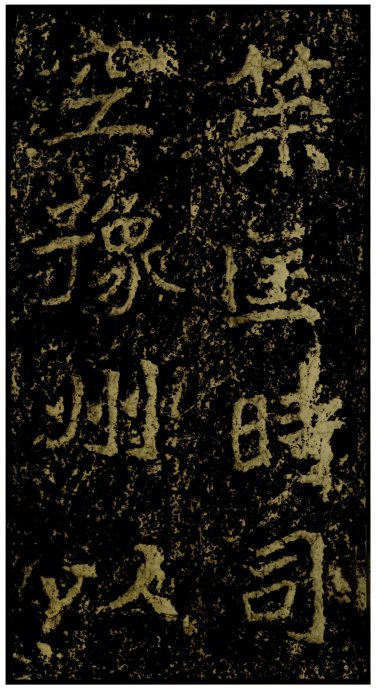 策匡時司
空豫州以